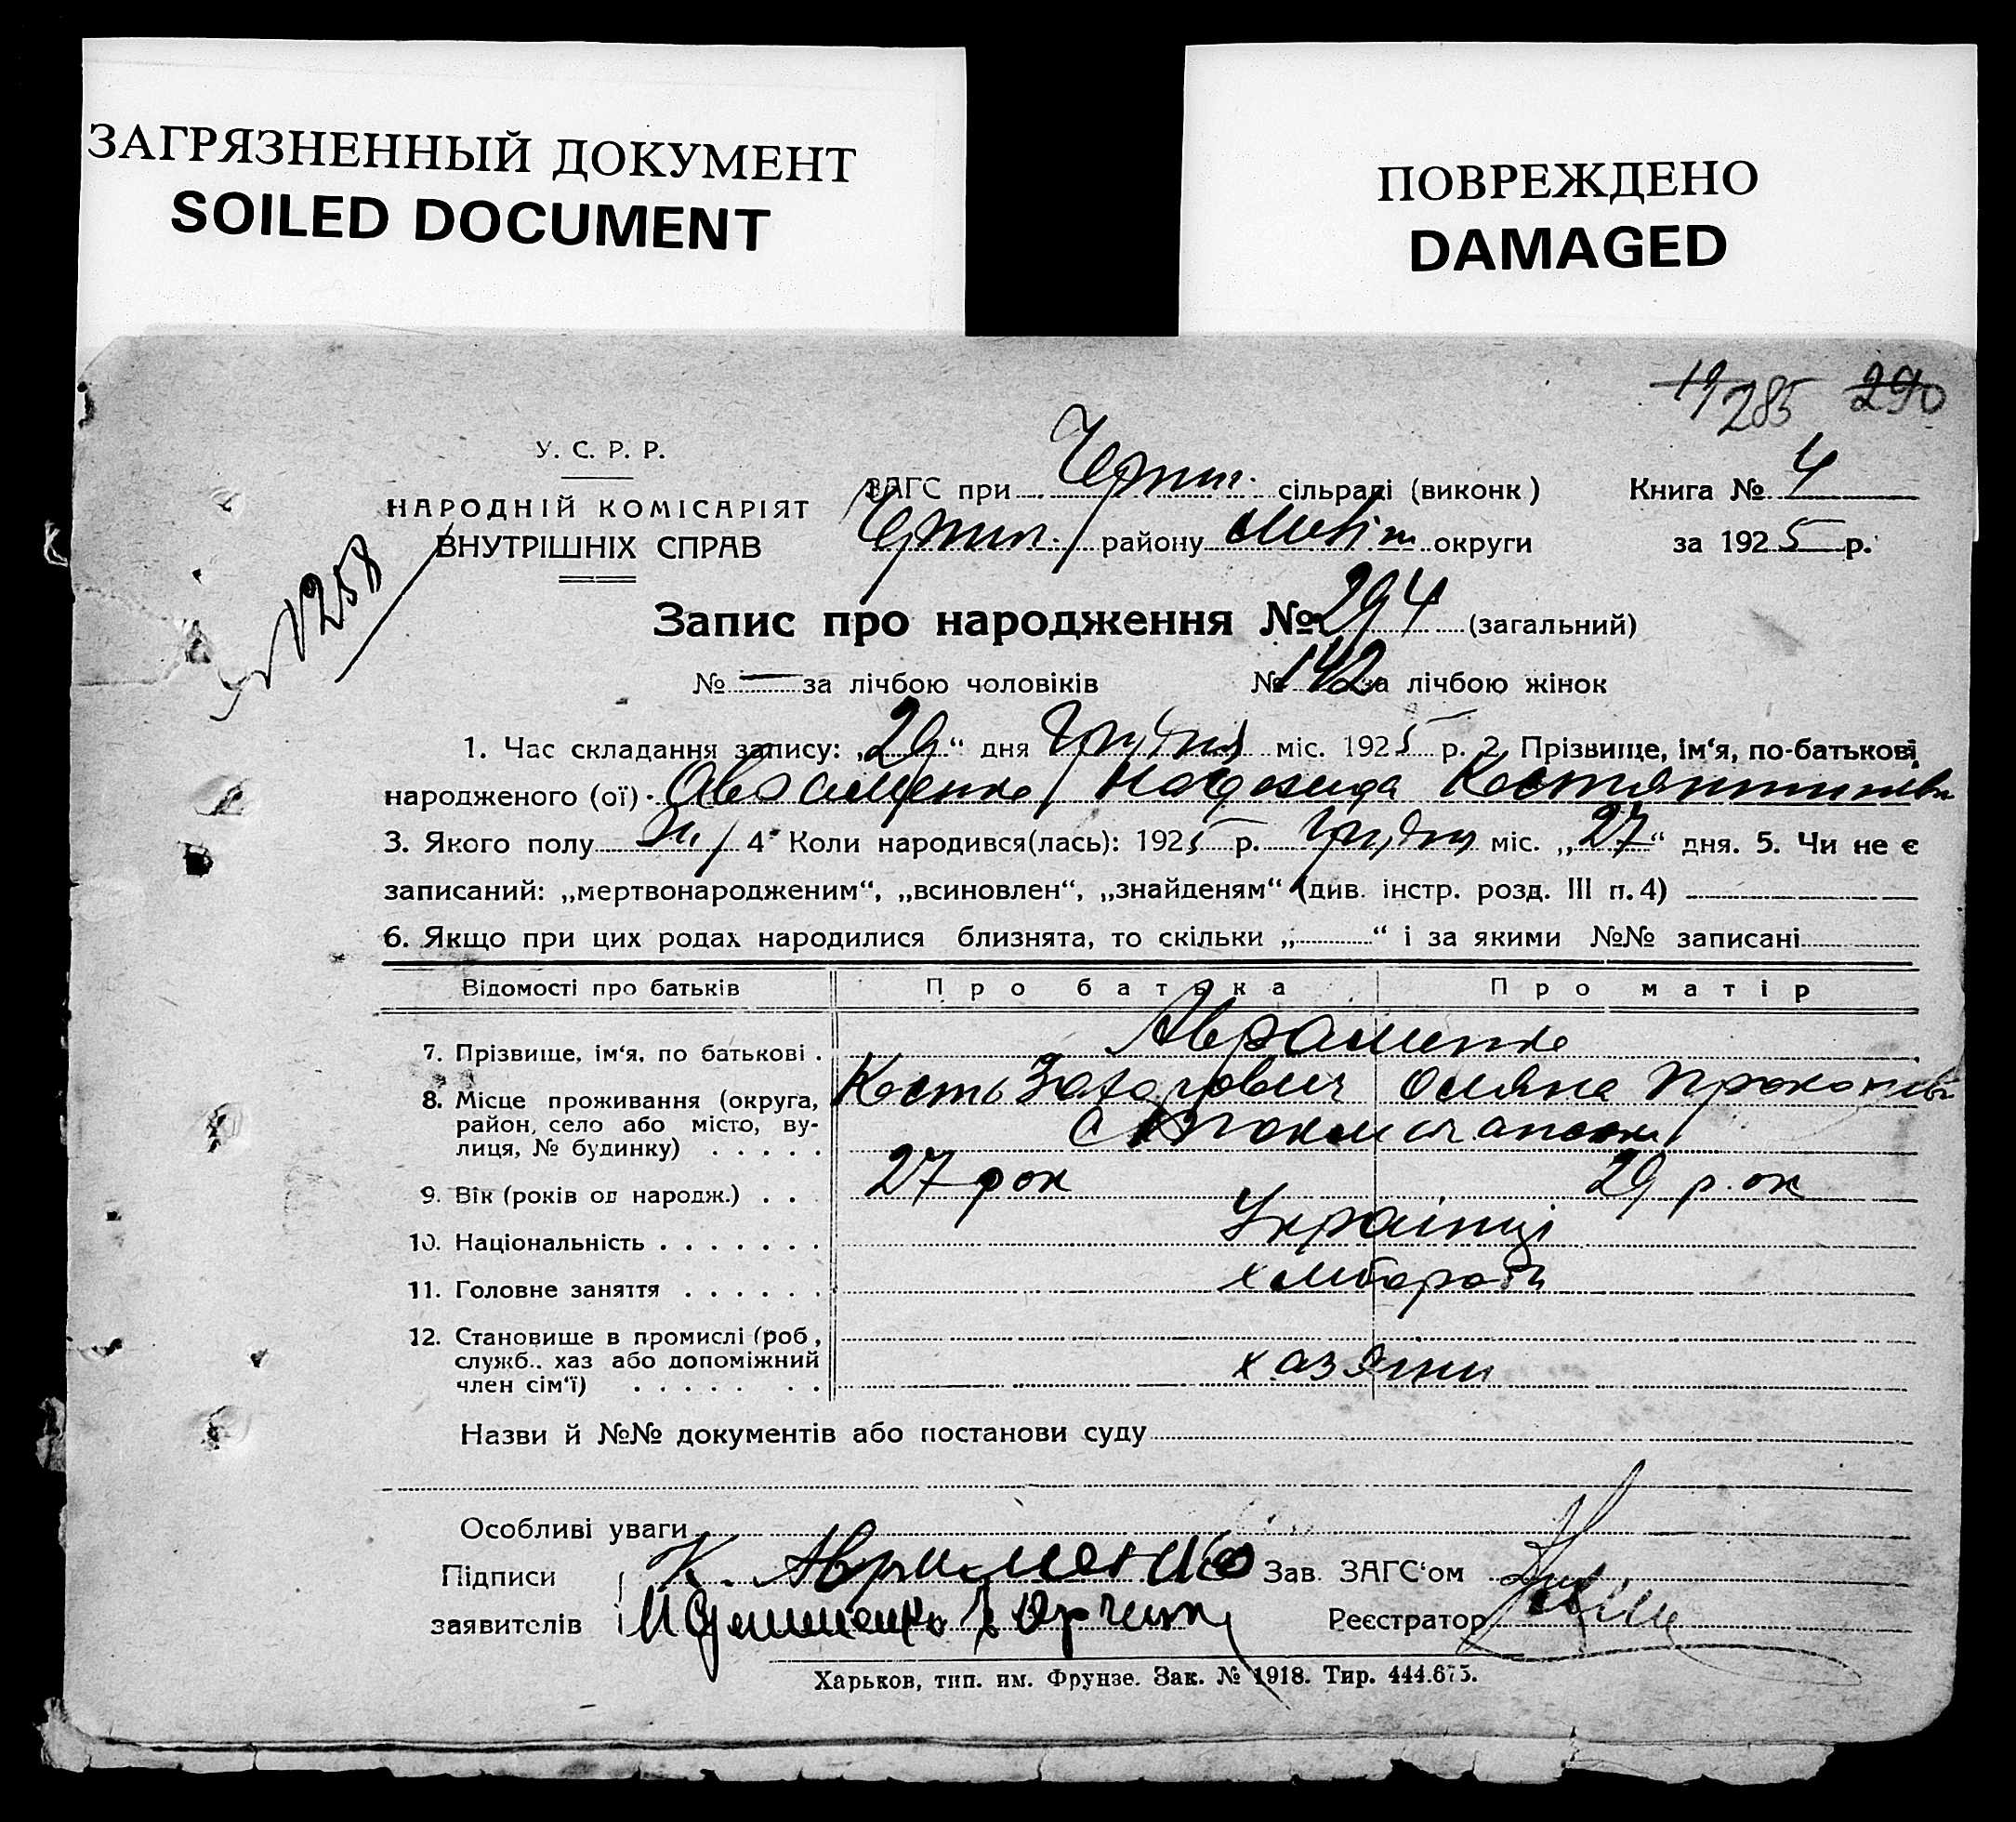 ЗАГРЯЗНЕННЫЙ ДОКУМЕНТ
SOILED DOCUMENT
ПОВРЕЖДЕНО
DAMAGED
19 285 290
У. С. Р. Р.
НАРОДНІЙ КОМІСАРІЯТ
ВНУТРІШНІХ СПРАВ
1258
ЗАГС при сільраді (виконк) Книга № 4
району округи за 1925 р.
Запис про народження № 294 (загальний)
№ — за лічбою чоловіків № 142 за лічбою жінок
1. Час складання запису: „29“ дня Грудня міс. 1925 р. 2. Прізвище, ім‘я, по-батькові
народженого (ої) Авраменко Надежда Костянтинівн
3. Якого полу ж 4. Коли народився(лась): 1925 р. Грудня міс. „27“ дня. 5. Чи не є
записаний: „мертвонародженим“, „всиновлен“, „знайденям“ (див. інстр. розд. III п. 4)
6. Якщо при цих родах народилися близнята, то скільки „ “ і за якими №№ записані
Відомості про батьків Про батька Про матір
7. Прізвище, ім‘я, по батькові . Авраменко
Кость Захарович Оляна
8. Місце проживання (округа,
район, село або місто, ву-
лиця, № будинку) . . . . .
9. Вік (років од народж.) . . 27 рок 29 рок
10. Національність . . . . . . . Українці
11. Головне заняття . . . . . . хлібороби
12. Становище в промислі (роб,
служб.. хаз або допоміжний
член сім‘ї) . . . . . . . хазяїни
Назви й №№ документів або постанови суду
Особливі уваги
Підписи К. Авраменко Зав. ЗАГС‘ом
заявителів Реєстратор
Харьков, тип. им. Фрунзе. Зак. № 1918. Тир. 444.675.